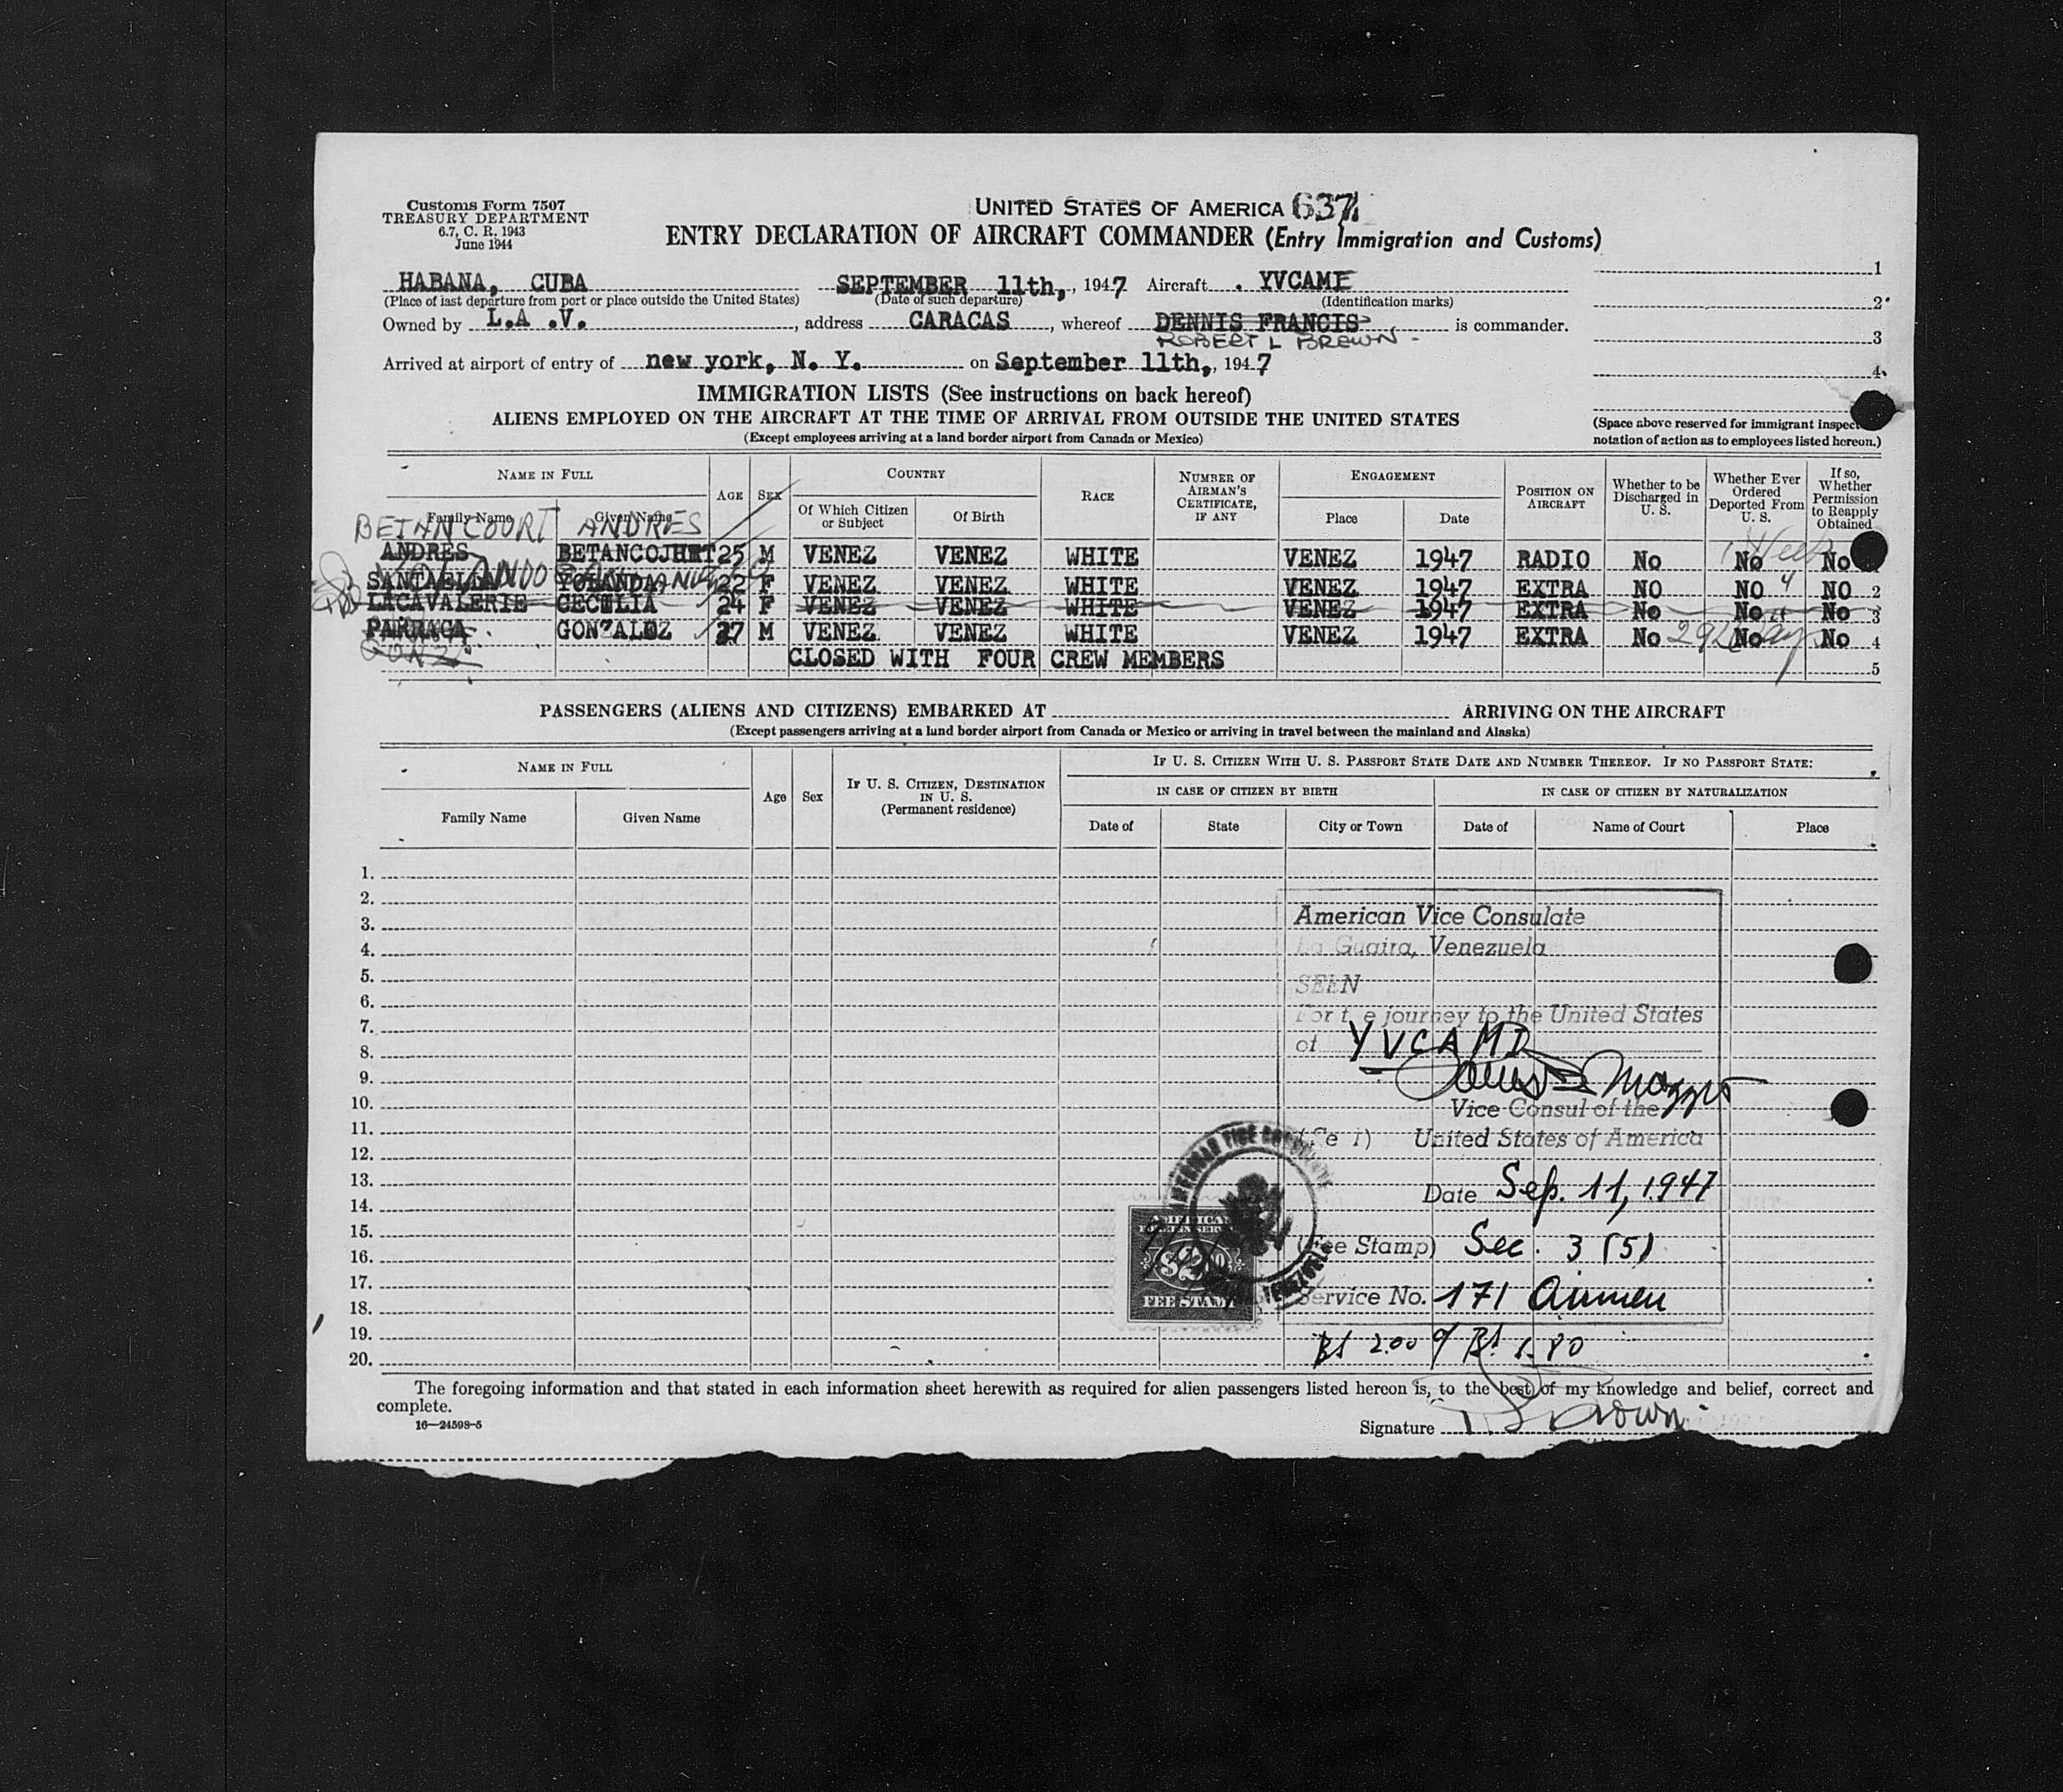 Customs Form 7507
TREASURY DEPARTMENT
6.7, C. R. 1943
June 1944
UNITED STATES OF AMERICA 637
ENTRY DECLARATION OF AIRCRAFT COMMANDER (Entry Immigration and Customs)
HABANA, CUBA SEPTEMBER 11th, , 1947 Aircraft YVCAME 1
(Place of last departure from port or place outside the United States) (Date of such departure) (Identification marks) 2
Owned by L.A .V. , address CARACAS , whereof DENNIS FRANCIS is commander.
ROBERT L BROWN 3
Arrived at airport of entry of new york, N. Y. on September 11th, , 1947 4
IMMIGRATION LISTS (See instructions on back hereof)
ALIENS EMPLOYED ON THE AIRCRAFT AT THE TIME OF ARRIVAL FROM OUTSIDE THE UNITED STATES
(Except employees arriving at a land border airport from Canada or Mexico)
(Space above reserved for immigrant inspec
notation of action as to employees listed hereon.)
NAME IN FULL AGE SEX COUNTRY RACE NUMBER OF AIRMAN'S CERTIFICATE, IF ANY ENGAGEMENT POSITION ON AIRCRAFT Whether to be Discharged in U. S. Whether Ever Ordered Deported From U. S. If so, Whether Permission to Reapply Obtained
Family Name Given Name Of Which Citizen or Subject Of Birth Place Date
BETANCOURT ANDRES
ANDRES 25 M VENEZ VENEZ WHITE VENEZ 1947 RADIO No No No
YOLANDA 22 F VENEZ VENEZ WHITE VENEZ 1947 EXTRA NO NO NO 2
LACAVALERIE CECILIA 24 F VENEZ VENEZ WHITE VENEZ 1947 EXTRA No No No 3
PARRAGA GONZALEZ 27 M VENEZ VENEZ WHITE VENEZ 1947 EXTRA No 29 No No 4
CLOSED WITH FOUR CREW MEMBERS 5
PASSENGERS (ALIENS AND CITIZENS) EMBARKED AT ARRIVING ON THE AIRCRAFT
(Except passengers arriving at a land border airport from Canada or Mexico or arriving in travel between the mainland and Alaska)
NAME IN FULL Age Sex IF U. S. CITIZEN, DESTINATION IN U. S. (Permanent residence) IF U. S. CITIZEN WITH U. S. PASSPORT STATE DATE AND NUMBER THEREOF. IF NO PASSPORT STATE:
IN CASE OF CITIZEN BY BIRTH IN CASE OF CITIZEN BY NATURALIZATION
Family Name Given Name Date of State City or Town Date of Name of Court Place
1.
2.
3. American Vice Consulate
4. La Guaira, Venezuela
5. SEEN
6.
7. For t e journey to the United States
8. of YVCAMD
9.
10. Vice Consul of the
11. United States of America
12.
13. Date Sep. 11, 1947
14.
15. (Fee Stamp) Sec. 3 (5)
16.
17. Service No. 171 Airmen
18. FEE STAMP
19.
20.
The foregoing information and that stated in each information sheet herewith as required for alien passengers listed hereon is, to the best of my knowledge and belief, correct and
complete.
16—24598-5
Signature Brown